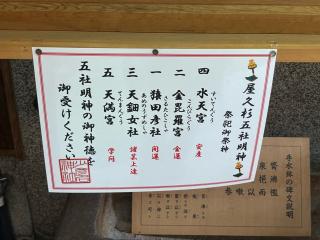 屋久杉五社明神
祭祀御祭神
四 水天宮 すいてんぐう 安産
二 金毘羅宮 こんぴらぐう 金運
一 猿田彦社 さるたひこしゃ 開運
三 天鈿女社 あめのうずめしゃ 諸芸上達
五 天満宮 てんまんぐう 学問
五社明神の御神徳を
御受けください
手水鉢の碑文説明